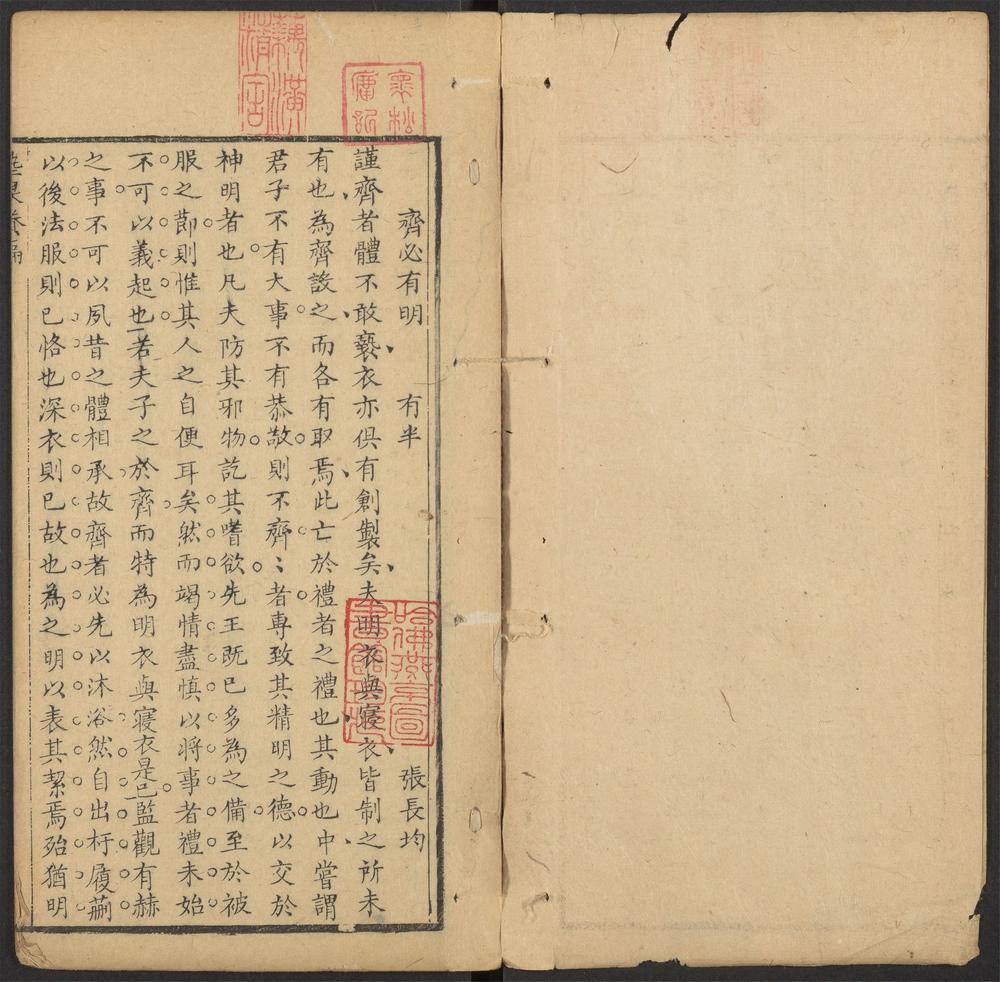 齊必有明　有半　張長均
謹齊者體不敢褻衣亦俱有創製矣夫明衣與寢衣皆制之所未
有也為齊設之而各有取焉此亡於禮者之禮也其動也中嘗謂
君子不有大事不有恭敬則不齊〻者專致其精明之德以交於
神明者也凡夫防其邪物訖其嗜欲先王既已多為之備至於被
服之節則惟其人之自便耳矣然而竭情盡慎以將事者禮未始
不可以義起也若夫子之於齊而特為明衣與寢衣是已監觀有赫
之事不可以夙昔之體相承故齊者必先以沐浴然自出杅履蒯
以後法服則已恪也深衣則已故也為之明以表其潔焉殆猶明
哈佛燕京圖